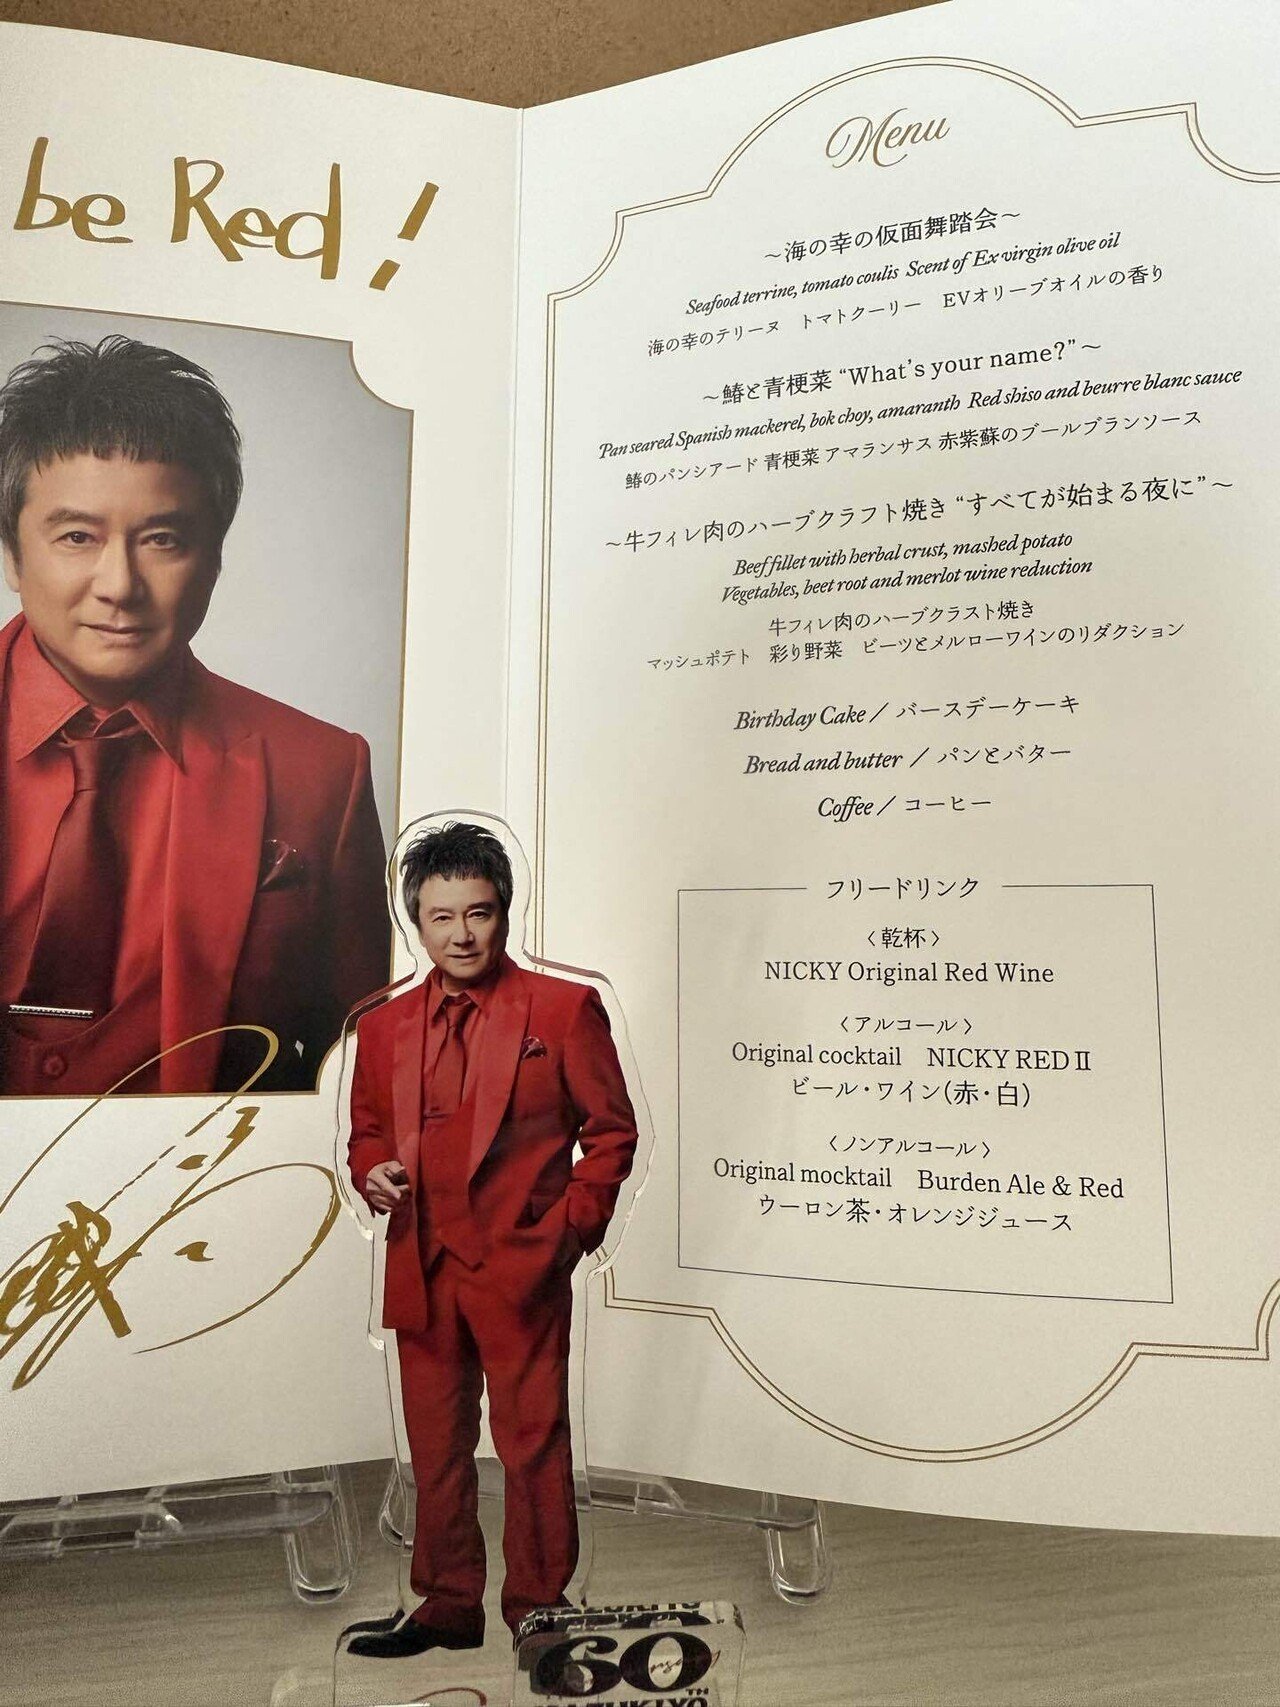 be Red!
Menu
～海の幸の仮面舞踏会～
Seafood terrine, tomato coulis Scent of Ex virgin olive oil
海の幸のテリーヌ　トマトクーリー　EVオリーブオイルの香り
～鰆と青梗菜 “What's your name?” ～
Pan seared Spanish mackerel, bok choy, amaranth Red shiso and beurre blanc sauce
鰆のパンシアード 青梗菜 アマランサス 赤紫蘇のブールブランソース
～牛フィレ肉のハーブクラフト焼き “すべてが始まる夜に”～
Beef fillet with herbal crust, mashed potato
Vegetables, beet root and merlot wine reduction
牛フィレ肉のハーブクラスト焼き
マッシュポテト　彩り野菜　ビーツとメルローワインのリダクション
Birthday Cake / バースデーケーキ
Bread and butter / パンとバター
Coffee / コーヒー
フリードリンク
〈乾杯〉
NICKY Original Red Wine
〈アルコール〉
Original cocktail　NICKY RED Ⅱ
ビール・ワイン(赤・白)
〈ノンアルコール〉
Original mocktail　Burden Ale & Red
ウーロン茶・オレンジジュース
60
TH